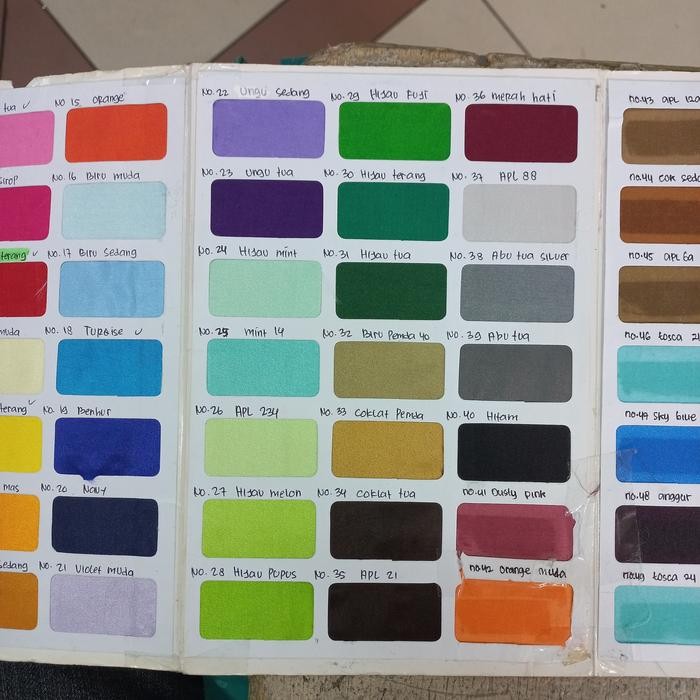 tua
No 15 orange
sirop
No. 16 Biru muda
terang
No. 17 Biru Sedang
muda
No. 18 Turqise
terang
No. 19 Benhur
mas
No. 20 Navy
Sedang
No. 21 Violet muda
No. 22 Ungu Sedang
No. 29 Hijau Fuji
No. 36 merah hati
No. 23 Ungu tua
No. 30 Hijau terang
No. 37 APL 88
No. 24 Hijau mint
No. 31 Hijau tua
No. 38 Abu tua Silver
No. 25 mint 14
No. 32 Biru Pemda 40
No. 39 Abu tua
No. 26 APL 234
No. 33 Coklat Pemda
No. 40 Hitam
No. 27 Hijau melon
No. 34 Coklat tua
no.41 Dusty pink
No. 28 Hijau Pupus
No. 35 APL 21
no.42 orange muda
no.43 apl 120
no.44 cok seda
no.45 apl 6a
no.46 tosca 2
no.47 sky blue
no.48 anggur
no.49 tosca 24